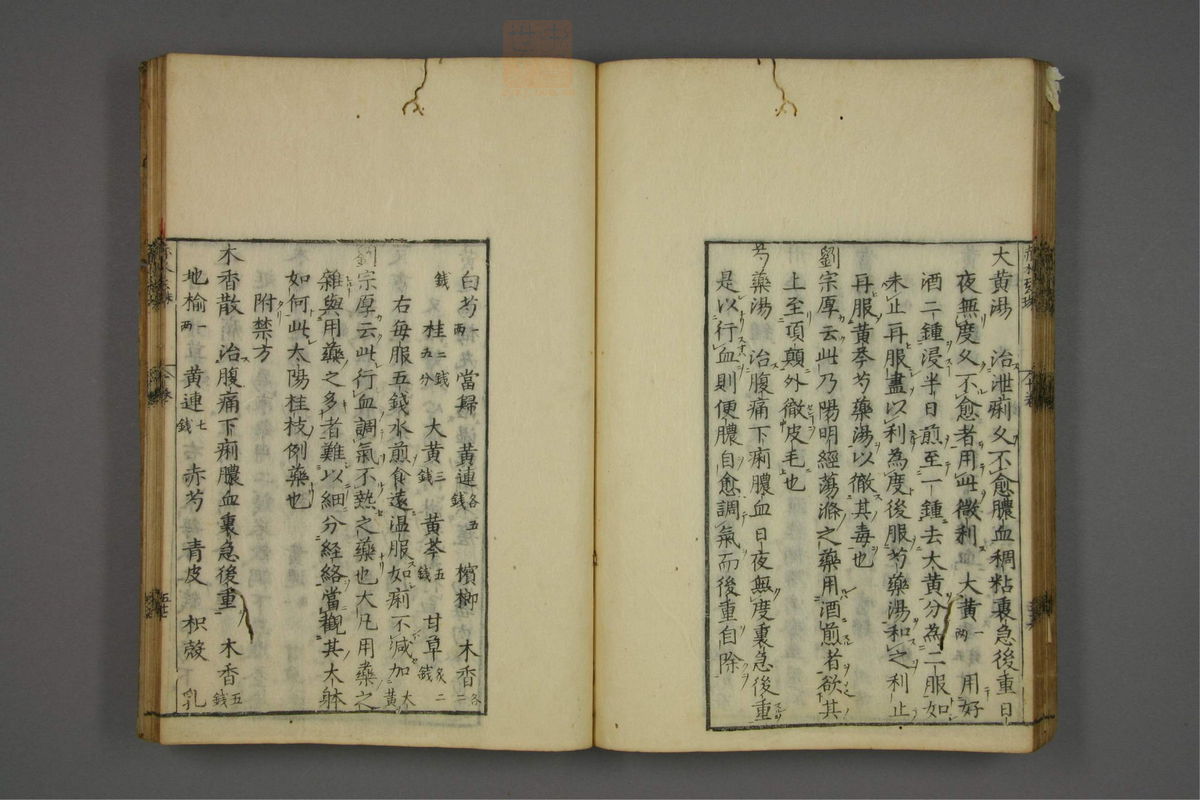 大黄湯 治泄痢久不愈膿血稠粘裏急後重日
夜無度久不愈者用此徹利血大黄一兩用好
酒二鍾浸半日煎至一鍾去大黄分為二服如
未止再服盡以利為度後服芍藥湯和之利止
再服黄芩芍藥湯以徹其毒也
劉宗厚云此乃陽明經蕩滌之藥用酒煎者欲其
上至項顛外徹皮毛也
芍藥湯 治腹痛下痢膿血日夜無度裏急後重
是以行血則便膿自愈調氣而後重自除
白芍一兩當歸 黄連各五錢 檳榔 木香各二
錢 桂二錢五分 大黄三錢 黄芩五錢 甘草炙二錢
右毎服五錢水煎食遠温服如痢不減加大黄
劉宗厚云此行血調氣不熱之藥也大凡用藥之
雜與用藥之多者難以細分経絡當觀其大躰
如何此太陽桂枝例藥也
附禁方
木香散 治腹痛下痢膿血裏急後重 木香五錢
地榆一兩黄連七錢 赤芍 青皮 枳殻 乳